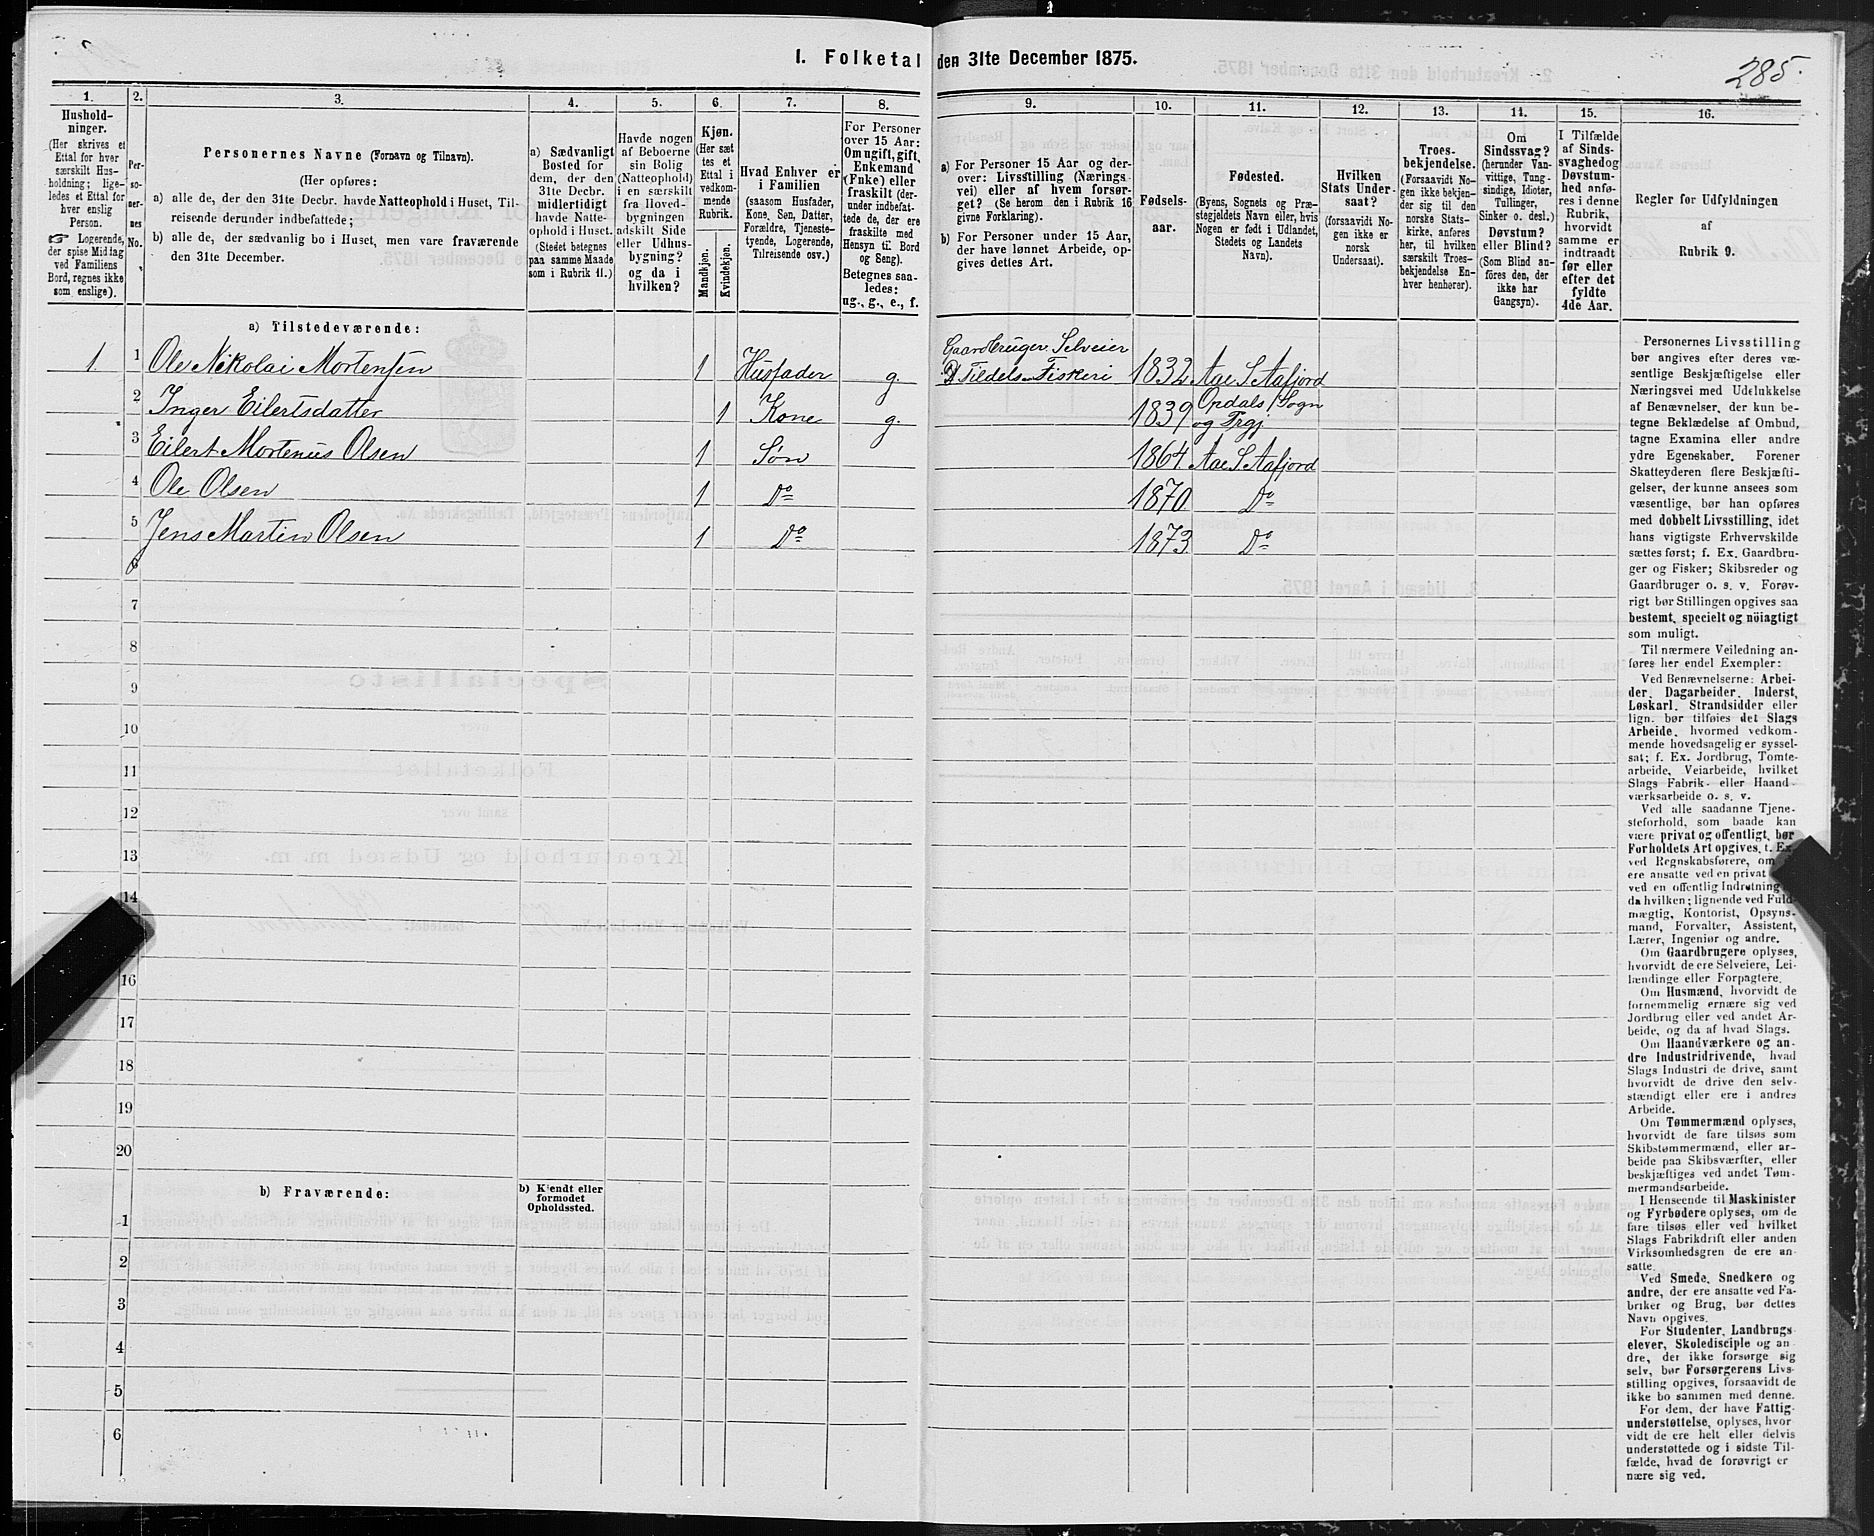 I. Folketal den 31te December 1875.
285.
1.
Hushold-
ninger.
(Her skrives et
Ettal for hver
særskilt Hus-
holdning; lige-
ledes et Ettal for
hver enslig
Person.
☞ Logerende,
der spise Middag
ved Familiens
Bord, regnes ikke
som enslige).
2.
Per-
so-
ner-
nes
No.
3.
Personernes Navne (Fornavn og Tilnavn).
(Her opføres:
a) alle de, der den 31te Decbr. havde Natteophold i Huset, Til-
reisende derunder indbefattede;
b) alle de, der sædvanlig bo i Huset, men vare fraværende
den 31te December.
4.
a) Sædvanligt
Bosted for
dem, der den
31te Decbr.
midlertidigt
havde Natte-
ophold i Huset.
(Stedet betegnes
paa samme Maade
som i Rubrik 11.)
5.
Havde nogen
af Beboerne
sin Bolig
(Natteophold)
i en særskilt
fra Hoved-
bygningen
adskilt Side
eller Udhus-
bygning?
og da i
hvilken?
6.
Kjøn.
(Her sæt
tes et
Ettal i
vedkom-
mende
Rubrik.
Mandkjøn.
Kvindekjøn.
7.
Hvad Enhver er
i Familien
(saasom Husfader,
Kone, Søn, Datter,
Forældre, Tjeneste-
tyende, Logerende,
Tilreisende osv.)
8.
For Personer
over 15 Aar:
Om ugift, gift,
Enkemand
(Enke) eller
fraskilt (der-
under indbefat-
tede de, der ere
fraskilte med
Hensyn til Bord
og Seng).
Betegnes saa-
ledes:
ug., g., e., f.
9.
a) For Personer 15 Aar og der-
over: Livsstilling (Nærings-
vei) eller af hvem forsør-
get? (Se herom den i Rubrik 16
givne Forklaring).
b) For Personer under 15 Aar,
der have lønnet Arbeide, op-
gives dettes Art.
10.
Fødsels-
aar.
11.
Fødested.
(Byens, Sognets og Præ-
stegjeldets Navn eller, hvis
Nogen er født i Udlandet,
Stedets og Landets
Navn).
12.
Hvilken
Stats Under-
saat?
(forsaavidt No-
gen ikke er
norsk
Undersaat).
13.
Troes-
bekjendelse.
(Forsaavidt No-
gen ikke bekjen-
der sig til den
norske Stats-
kirke, anføres
her, til hvilken
særskilt Troes-
bekjendelse En-
hver henhører).
14.
Om
Sindssvag?
(herunder Van-
vittige, Tung-
sindige, Idioter,
Tullinger,
Sinker o. desl.)
Døvstum?
eller Blind?
(Som Blind an-
føres den, der
ikke har
Gangsyn).
15.
I Tilfælde
af Sinds-
svaghed og
Døvstum-
hed anfø-
res i denne
Rubrik,
hvorvidt
samme er
indtraadt
før eller
efter det
fyldte
4de Aar.
16.
Regler for Udfyldningen
af
Rubrik 9.
a) Tilstedeværende:
1. 1 Ole Nikolai Mortensen 1 Husfader g. Gaardbruger. Selveier Tildels Fiskeri 1832 Aae S Aafjord
2 Inger Eilertsdatter 1 Kone g. 1839 Opdals Sogn og Prgj
3 Eilert Mortenius Olsen 1 Søn 1864 Aae S. Aafjord
4 Ole Olsen 1 Do 1870 Do
5 Jens Martin Olsen 1 Do 1873 Do
6
7
8
9
10
11
12
13
14
16
17
18
19
20
b) Fraværende:
b) Kjendt eller
formodet
Opholdssted.
1
2
3
4
5
6
Personernes Livsstilling
bør angives efter deres væ-
sentlige Beskjæftigelse eller
Næringsvei med Udelukkelse
af Benævnelser, der kun be-
tegne Beklædelse af Ombud,
tagne Examina eller andre
ydre Egenskaber. Forener
Skatteyderen flere Beskjæfti-
gelser, der kunne ansees som
væsentlige, bør han opføres
med dobbelt Livsstilling, idet
hans vigtigste Erhvervskilde
sættes først; f. Ex. Gaardbru-
ger og Fisker; Skibsreder og
Gaardbruger o. s. v. Forøv-
rigt bør Stillingen opgives saa
bestemt, specielt og nöiagtigt
som muligt.
Til nærmere Veiledning an-
føres her endel Exempler:
Ved Benævnelserne: Arbei-
der, Dagarbeider, Inderst,
Løskarl, Strandsidder eller
lign. bør tilføies det Slags
Arbeide, hvormed vedkom-
mende hovedsagelig er syssel-
sat; f. Ex. Jordbrug, Tomte-
arbeide, Veiarbeide, hvilket
Slags Fabrik- eller Haand-
værksarbeide o. s. v.
Ved alle saadanne Tjene-
steforhold, som baade kan
være privat og offentligt, bør
Forholdets Art opgives, t. Ex.
ved Regnskabsførere, om
ere ansatte ved en privat
ved en offentlig Indretning
da hvilken; lignende ved Fuld-
mægtig, Kontorist, Opsyns-
mand, Forvalter, Assistent,
Lærer, Ingeniør og andre.
Om Gaardbrugere oplyses,
hvorvidt de ere Selveiere, Lei-
lændinge eller Forpagtere.
Om Husmænd, hvorvidt de
fornemmelig ernære sig ved
Jordbrug eller ved andet Ar-
beide, og da af hvad Slags.
Om Haandværkere og an-
dre Industridrivende, hvad
Slags Industri de drive, samt
hvorvidt de drive den selv-
stændigt eller ere i andres
Arbeide.
Om Tømmermænd oplyses,
hvorvidt de fare tilsøs som
Skibstømmermænd, eller ar-
beide paa Skibsværfter, eller
beskjæftiges ved andet Tøm-
mermandsarbeide.
I Henseende til Maskinister
og Fyrbødere oplyses, om de
fare tilsøs eller ved hvilket
Slags Fabrikdrift eller anden
Virksomhedsgren de ere an-
satte.
Ved Smede, Snedkere og
andre, der ere ansatte ved Fa-
briker og Brug, bør dettes
Navn opgives.
For Studenter, Landbrugs-
elever, Skoledisciple og an-
dre, der ikke forsørge sig
selv, bør Forsørgerens Livs-
stilling opgives, forsaavidt de
ikke bo sammen med denne.
For dem, der have Fattig-
understøttelse, oplyses, hvor-
vidt de ere helt eller delvis
understøttede og i sidste Til-
fælde, hvad de forøvrigt er-
nære sig ved.